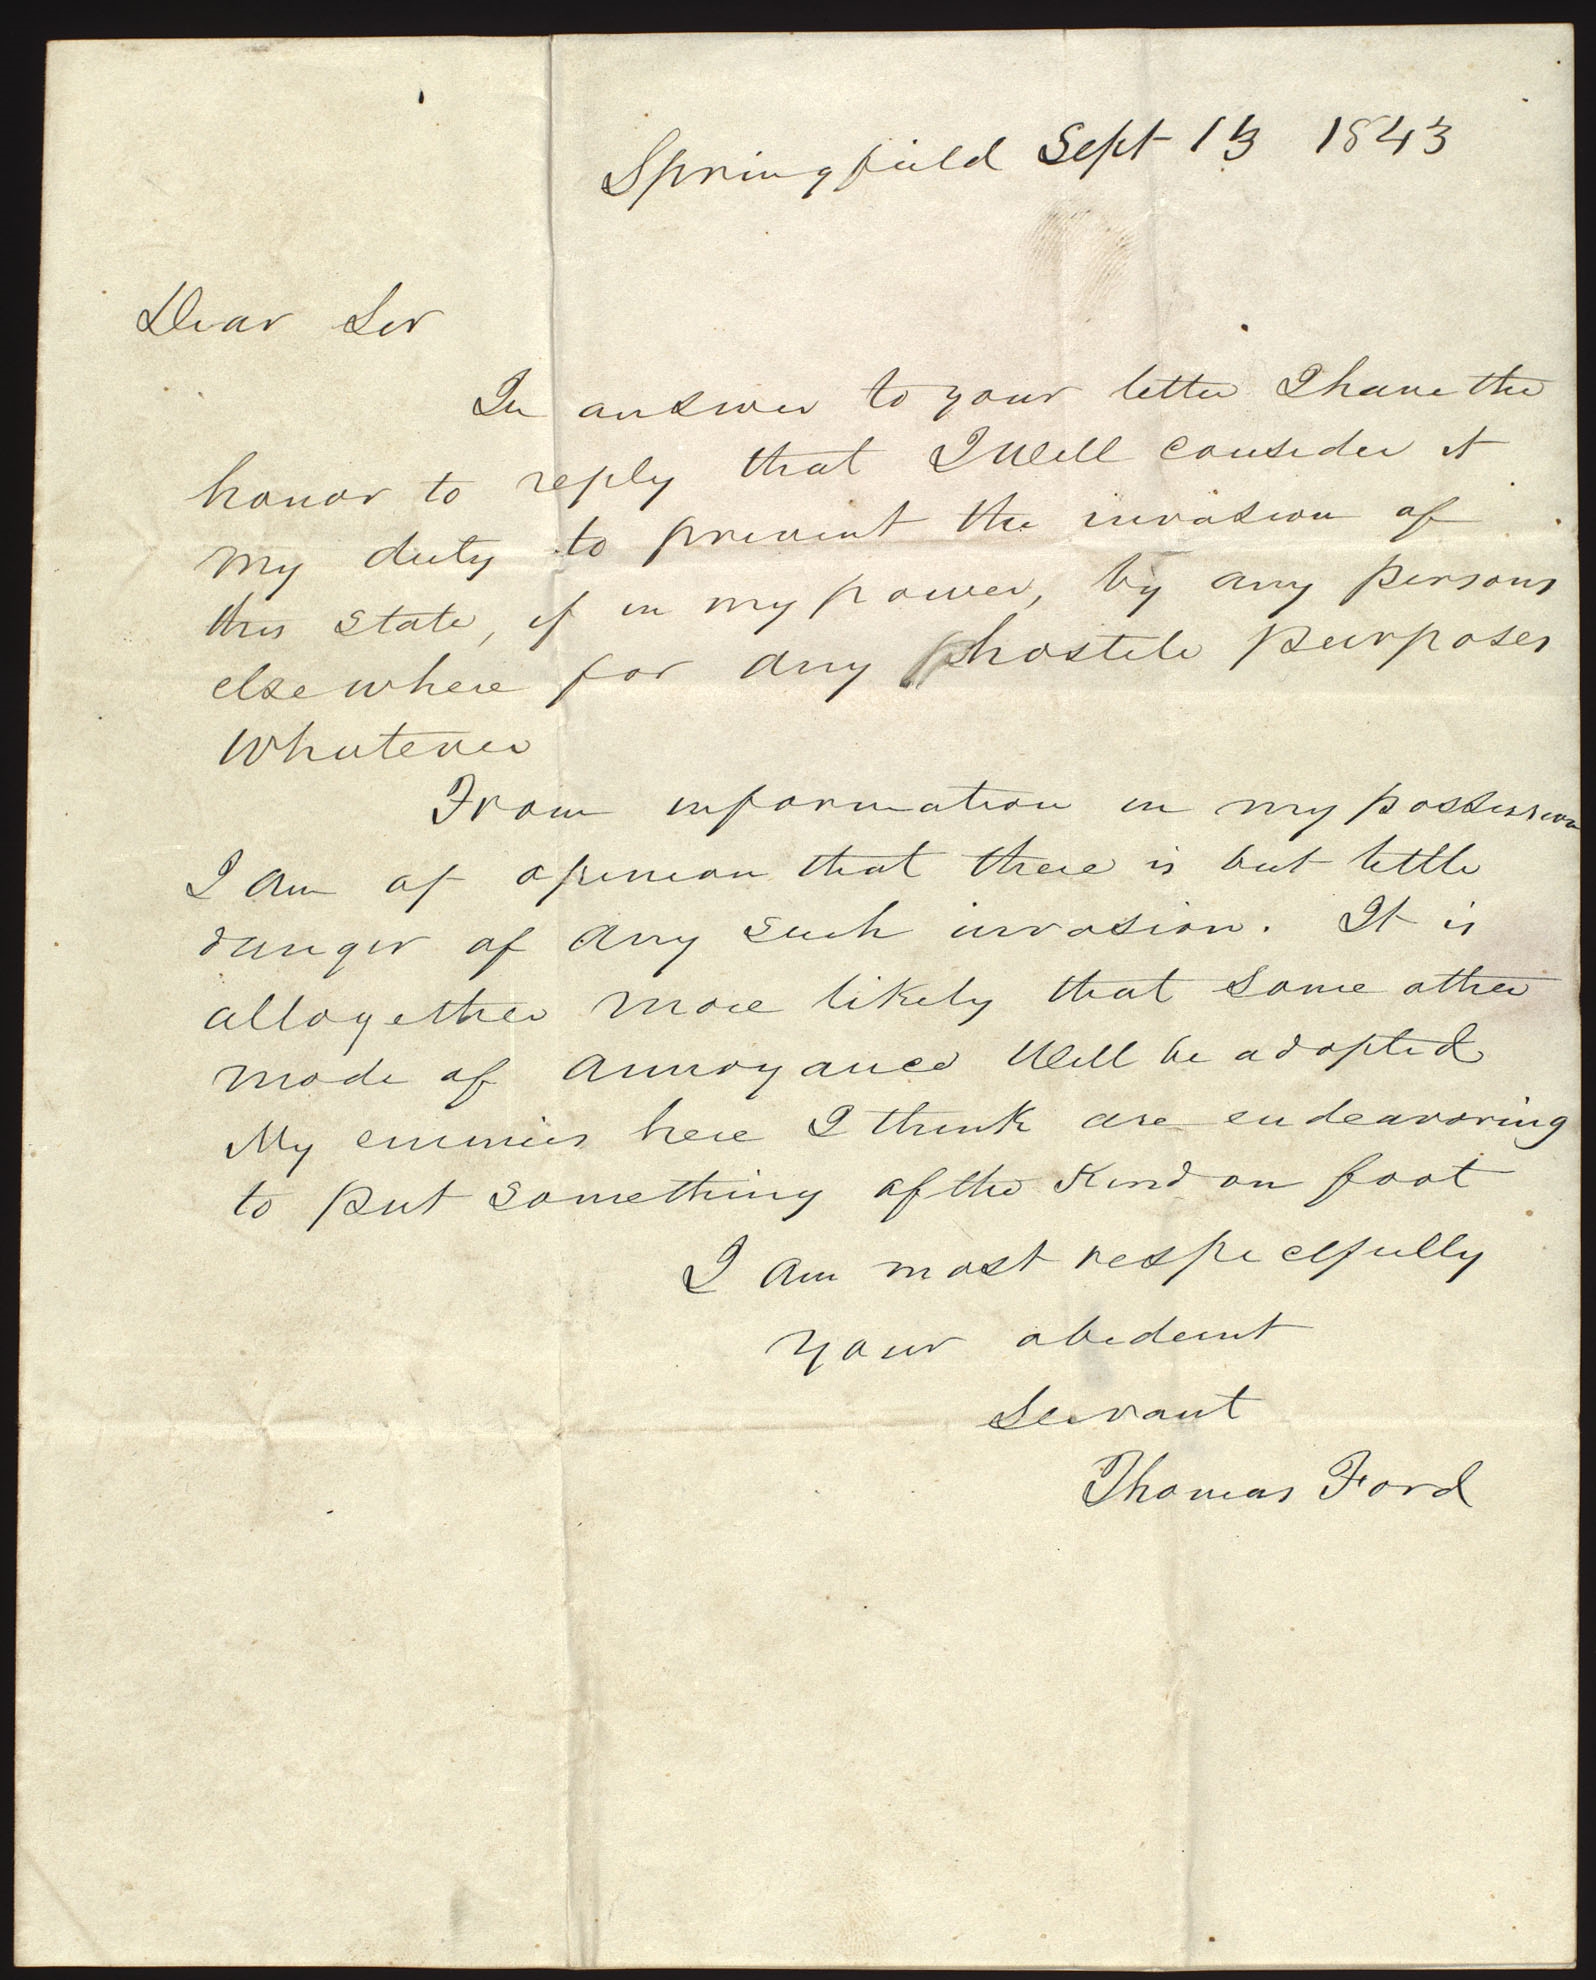 Springfield Sept 13 1843
Dear Sir
In answer to your letter I have the
honor to reply that I will consider it
my duty to prevent the invasion of
this state, if in my power, by any persons
elsewhere for any hostile purposes
whatever
From information in my possession
I am of opinion that there is but little
danger of any such invasion. It is
allogether more likely that some other
mode of annoyance will be adopted
My enemies here I think are endeavoring
to put something of the kind on foot
I am most respectfully
your obedient
Servant
Thomas Ford